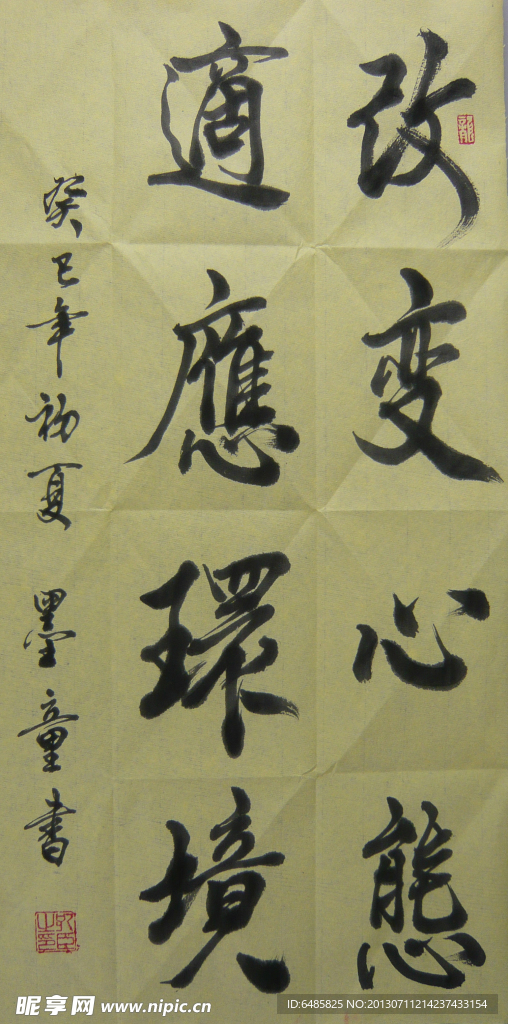 改变心態
適應環境
癸巳年初夏 墨童書
昵享网 www.nipic.cn
ID:6485825 NO:20130711214237433154